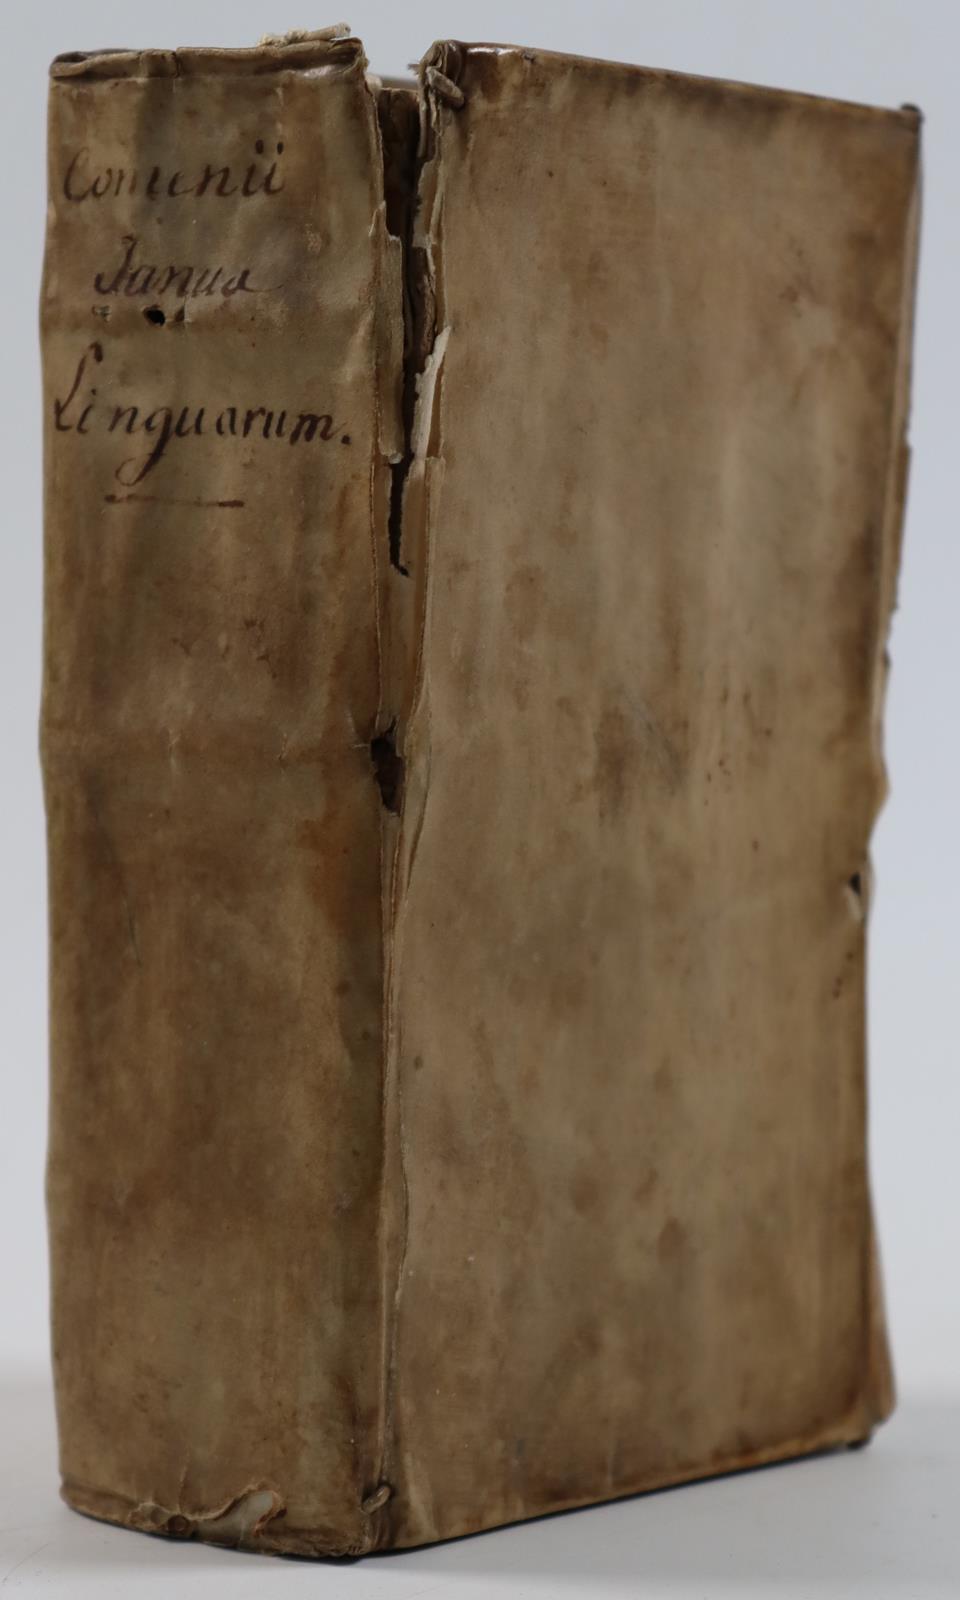 Comenii
Janua
Linguarum.